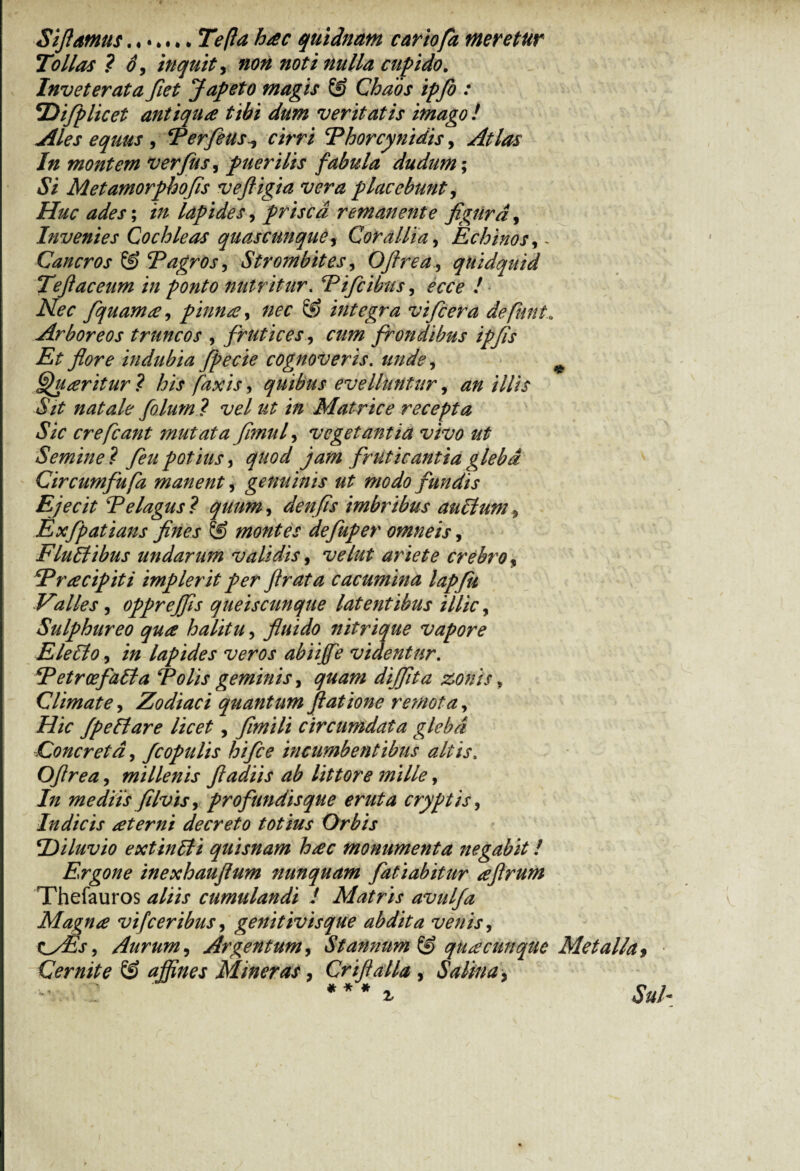 Siſtamus....... Teſta hæc quidnam carioſa meretur
Tollas ? ô, inquit, non noti nulla cupido.
Inveterata fiet Japeto magis & Chaos ipſo :
Diſplicet antiquæ tibi dum veritatis imago !
Ales equus , Perſeus, cirri Phorcynidis, Atlas
In montem verſus, puerilis fabula dudum ;
Si Metamorphoſis veſtigia vera placebunt,
Huc ades ; in lapides, priscâ remanente figurâ,
Invenies Cochleas quascunque, Corallia, Echinos,
Cancros & Pagros, Strombites, Oſtrea, quidquid
Teſtaceum in ponto nutritur. Piſcibus, ecce !
Nec ſquamæ, pinnæ, nec & integra viſcera deſunt.
Arboreos truncos , frutices, cum frondibus ipſis
Et flore indubia ſpecie cognoveris. unde,
Quæritur ? his ſaxis, quibus evelluntur, an illis
Sit natale ſolum ? vel ut in Matrice recepta
Sic creſcant mutata ſimul, vegetantia vivo ut
Semine ? ſeu potius, quod jam fruticantia glebâ
Circumfuſa manent, genuinis ut modo fundis
Ejecit Pelagus ? quum, denſis imbribus auctum,
Exſpatians fines & montes deſuper omneis,
Fluctibus undarum validis, velut ariete crebro,
Præcipiti implerit per ſtrata cacumina lapſu
Valles , oppreſſis queiscunque latentibus illic,
Sulphureo quæ halitu, fluido nitrique vapore
Electo, in lapides veros abiiſſe videntur.
Petrœfacta Polis geminis, quam diſſita zonis,
Climate, Zodiaci quantum ſtatione remota,
Hic ſpectare licet , ſimili circumdata glebâ
Concretâ, ſcopulis hiſce incumbentibus altis.
Oſtrea, millenis ſtadiis ab littore mille,
In mediis ſilvis, profundisque eruta cryptis,
Indicis æterni decreto totius Orbis
Diluvio extincti quisnam hæc monumenta negabit !
Ergone inexhauſtum nunquam ſatiabitur æſtrum
Theſauros aliis cumulandi ! Matris avulſa
Magnæ viſceribus, genitivisque abdita venis,
Æs, Aurum, Argentum, Stannum & quæcunque Metalla,
Cernite & affines Mineras, Criſtalla , Salina,
* * * 2 Sul-